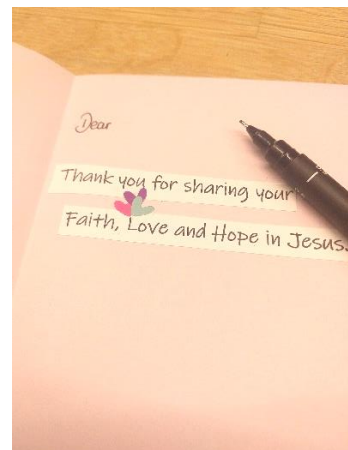 Dear
Thank you for sharing your
Faith, Love and Hope in Jesus.